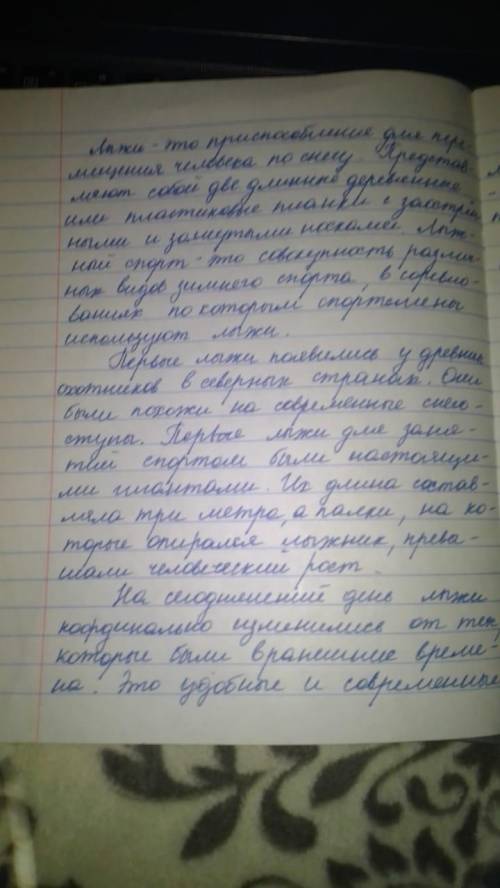 Лыжи - это приспособление для пере-
мещения человека по снегу. Представ-
ляют собой две длинные деревянные
или пластиковые планки с заострён-
ными и загнутыми носками. Лыж-
ный спорт - это совокупность различ-
ных видов зимнего спорта, в соревно-
ваниях по которым спортсмены
используют лыжи.
Первые лыжи появились у древних
охотников в северных странах. Они
были похожи на современные снего-
ступы. Первые лыжи для заня-
тий спортом были настоящи-
ми гигантами. Их длина состав-
ляла три метра, а палки, на ко-
торые опирался лыжник, превы-
шали человеческий рост.
На сегодняшний день лыжи
координально изменились от тех,
которые были в ранешние време-
на. Это удобные и современные